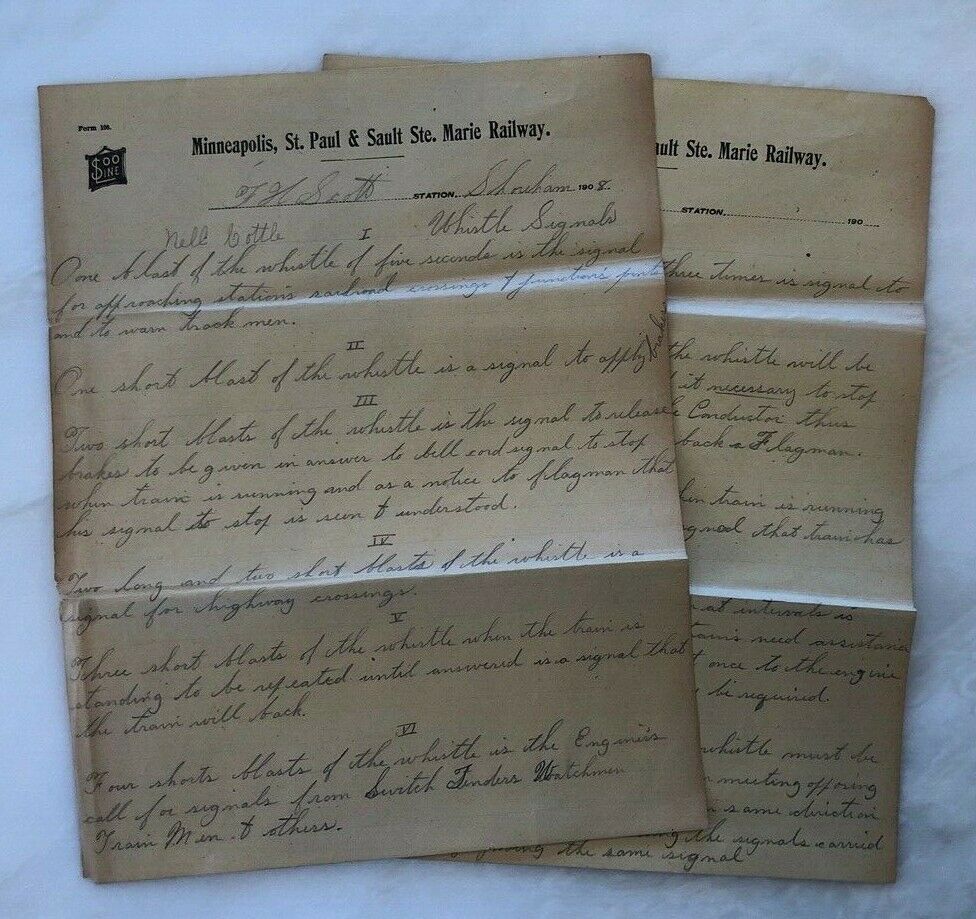 Form 106.
Minneapolis, St. Paul & Sault Ste. Marie Railway.
SOO
LINE
F H Scott STATION Shoreham 1908.
Nell Cottle I Whistle Signals
One blast of the whistle of five seconds is the signal
for approaching stations railroad crossings & junctions points
and to warn track men.
II
One short blast of the whistle is a signal to apply brakes
III
Two short blasts of the whistle is the signal to release
brakes to be given in answer to bell cord signal to stop
when train is running and as a notice to flagman that
his signal to stop is seen & understood.
IV
Two long and two short blasts of the whistle is a
signal for highway crossings.
V
Three short blasts of the whistle when the train is
standing to be repeated until answered is a signal that
the train will back.
VI
Four shorts blasts of the whistle is the Engine's
call for signals from Switch Tenders Watchmen
Train Men & others.
ault Ste. Marie Railway.
STATION 190
three times is signal to
the whistle will be
it necessary to stop
Conductor thus
back a Flagman.
train is running
that train has
at intervals is
need assistance
once to the engine
be required
whistle must be
meeting opposing
same direction
the signals carried
the same signal